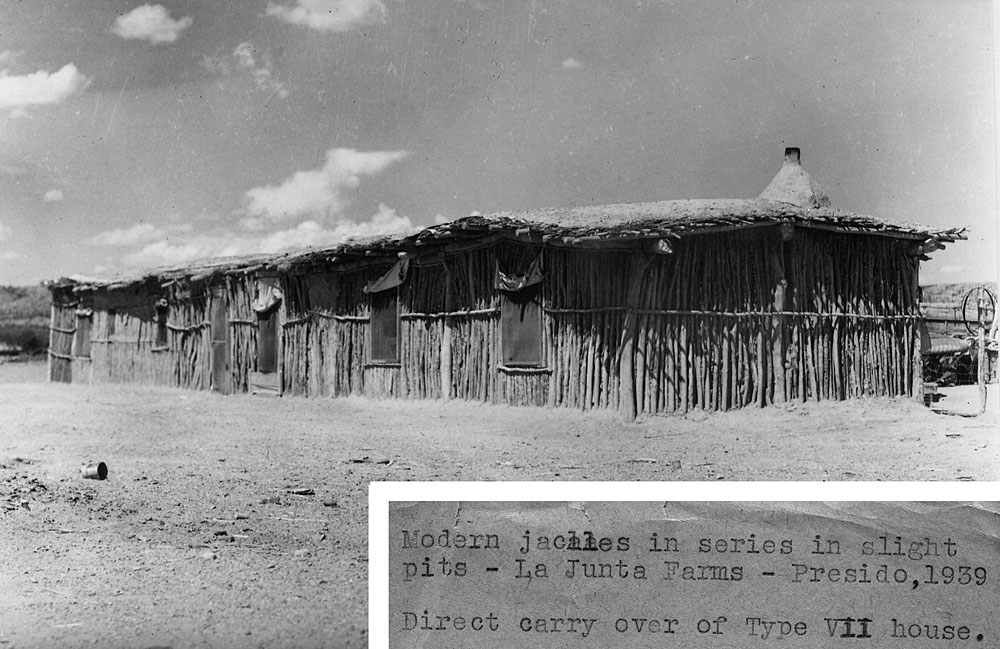 Modern jaclles in series in slight
pits - La Junta Farms - Presido,1939
Direct carry over of Type VII house.